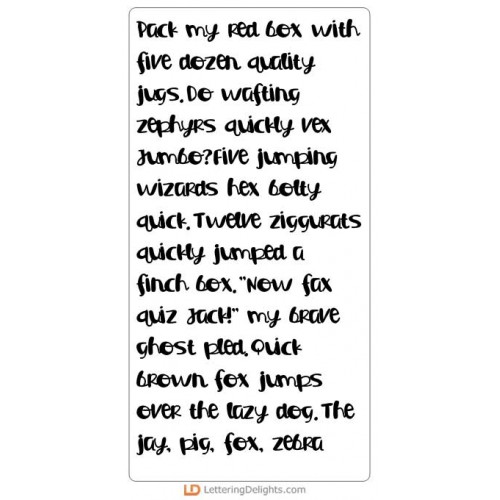 Pack my red box with
five dozen quality
jugs. Do wafting
zephyrs quickly vex
Jumbo? Five jumping
wizards hex bolty
quick. Twelve ziggurats
quickly jumped a
finch box. "Now fax
quiz Jack!" my brave
ghost pled. Quick
brown fox jumps
over the lazy dog. The
jay, pig, fox, zebra
LD LetteringDelights.com